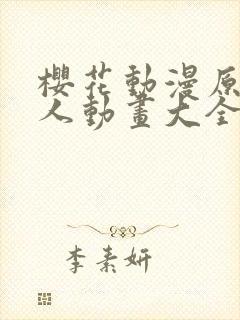 櫻花動漫原
人動畫大全
李素妍